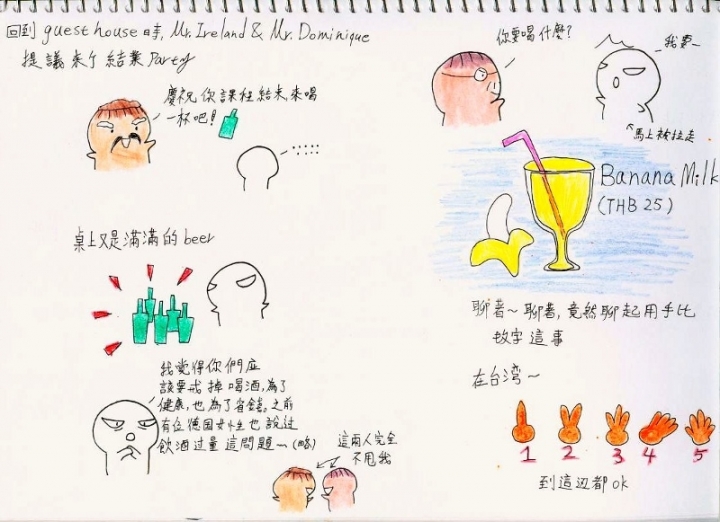 回到 guest house 時, Mr. Ireland & Mr. Dominique
提議來個結業 Party
慶祝你課程結束來喝
一杯吧!
桌上又是滿滿的 beer
我覺得你們應
該要戒掉喝酒,為了
健康,也為了省錢,之前
有位德国女性也說过
飲酒过量這問題~(略)
這兩人完全
不甩我
你要喝什麼?
我要~
馬上被拉走
Banana Milk
(THB 25)
聊著~聊著,竟然聊起用手比
数字這事
在台湾~
1 2 3 4 5
到這辺都ok